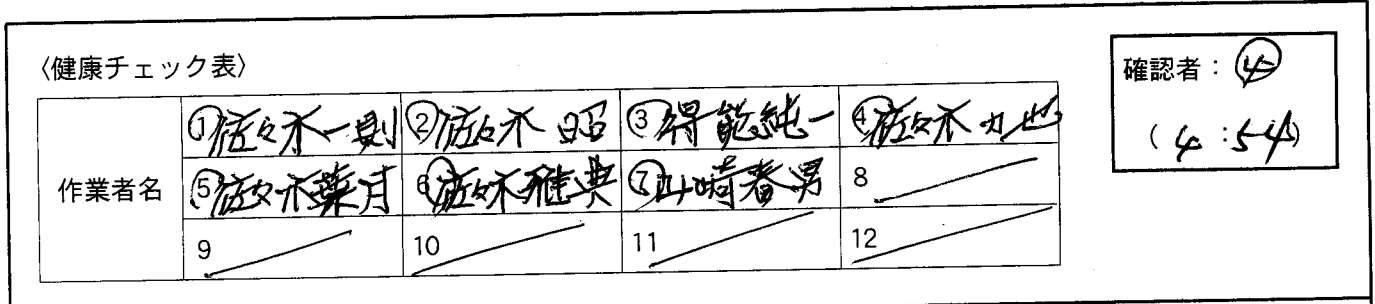 〈健康チェック表〉
確認者：④
(4:54)
作業者名
①佐々木一則 ②佐々木昭 ③得能純一 ④佐々木力也
⑤佐々木葉月 ⑥佐々木雅典 ⑦山崎春男 8
9 10 11 12